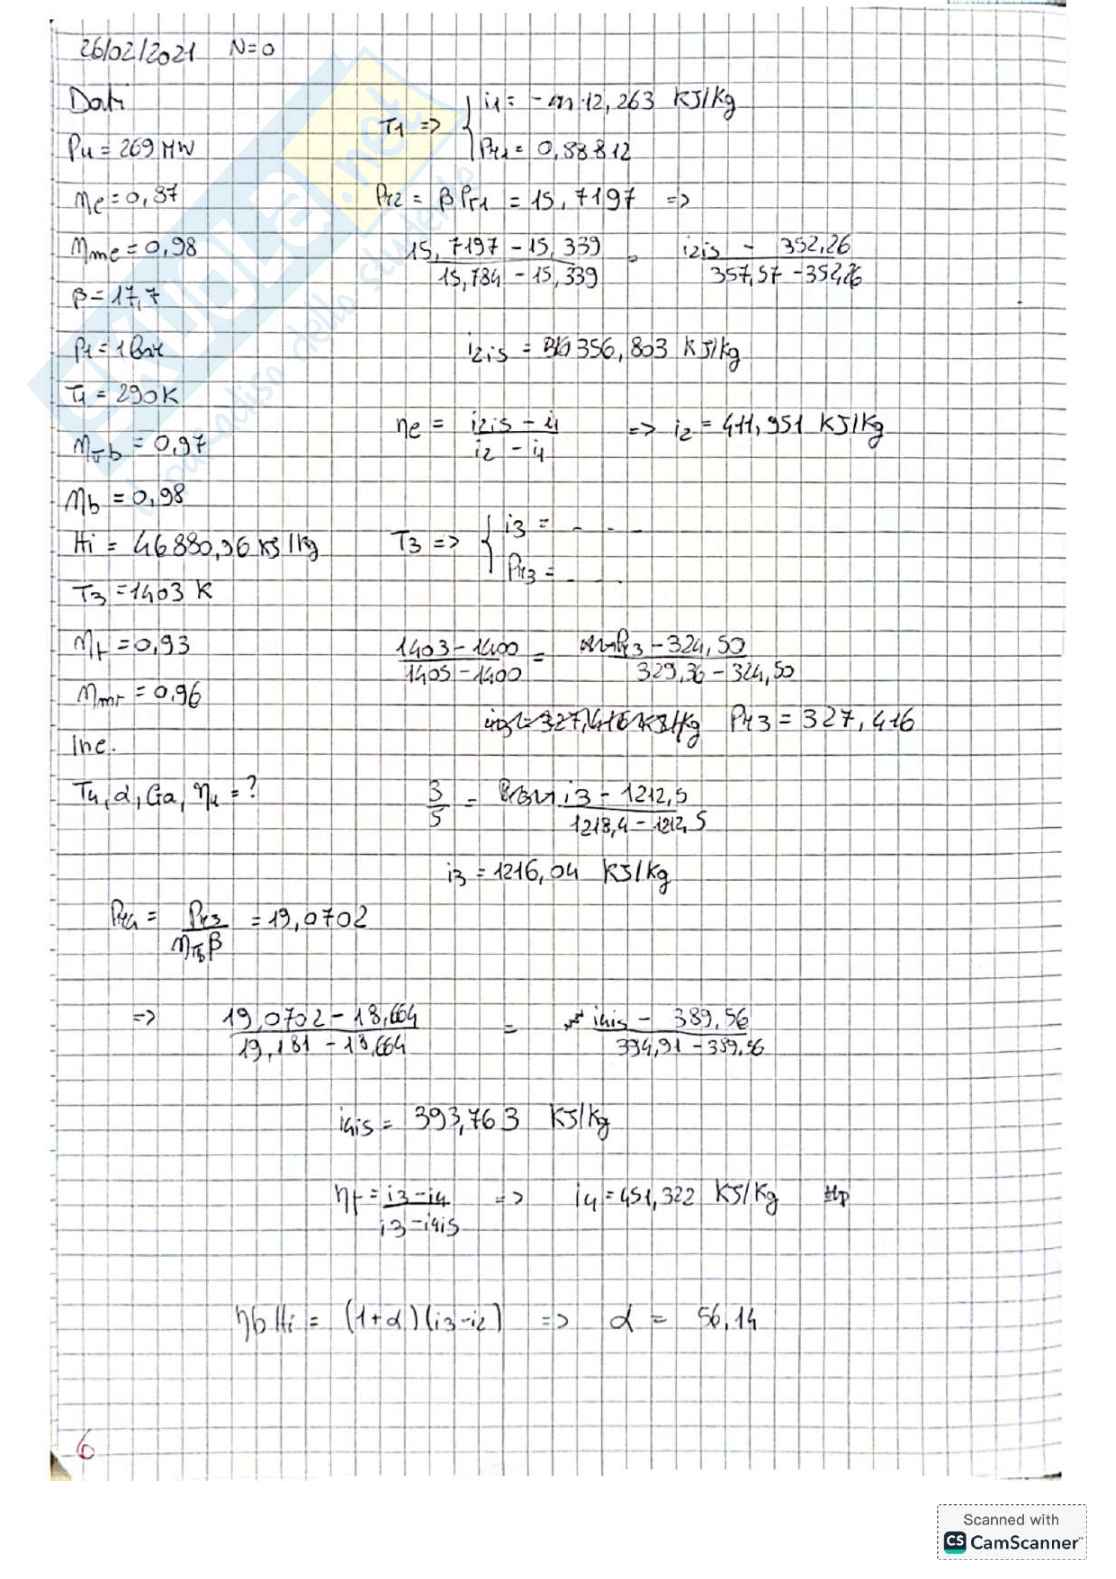 26/02/2021 N=0
Dati
Pu = 269 MW
ηc = 0,87
ηmc = 0,98
β = 17,7
P1 = 1 bar
T1 = 290 K
ηπb = 0,97
ηb = 0,98
Hi = 46880,96 KJ/Kg
T3 = 1403 K
ηt = 0,93
ηmt = 0,96
Inc.
T4, α, Ga, ηu = ?
T1 => { i1 = -12,263 KJ/Kg
Pr1 = 0,88812
Pr2 = β Pr1 = 15,7197 =>
15,7197 - 15,339 / 15,784 - 15,339 = i2is - 352,26 / 357,57 - 352,26
i2is = 356,803 KJ/Kg
ηc = i2is - i1 / i2 - i1 => i2 = 411,951 KJ/Kg
T3 => { i3 = - - -
Pr3 = - -
1403 - 1400 / 1405 - 1400 = Pr3 - 324,50 / 329,36 - 324,50
Pr3 = 327,416
3/5 = i3 - 1212,5 / 1218,4 - 1212,5
i3 = 1216,04 KJ/Kg
Pr4 = Pr3 / ηπb β = 19,0702
=> 19,0702 - 18,664 / 19,181 - 18,664 = i4is - 389,56 / 394,91 - 389,56
i4is = 393,763 KJ/Kg
ηt = i3 - i4 / i3 - i4is => i4 = 451,322 KJ/Kg
ηb Hi = (1+α)(i3 - i2) => α = 56,14
6
Scanned with
CS CamScanner